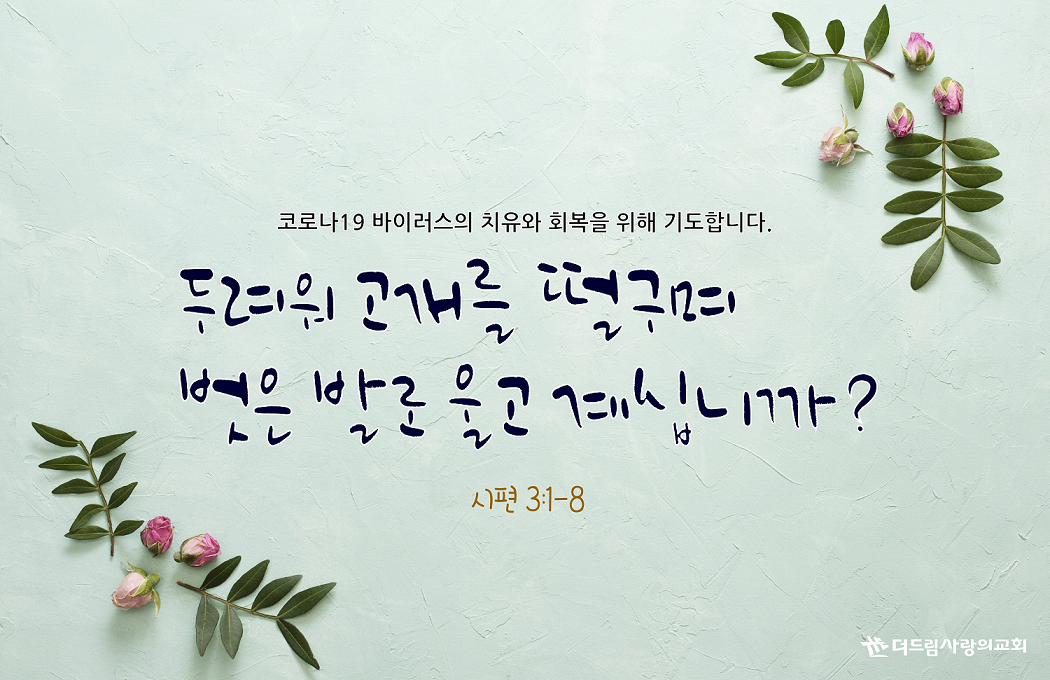 코로나19 바이러스의 치유와 회복을 위해 기도합니다.
두려워 고개를 떨구며
벗은 발로 울고 계십니까?
시편 3:1-8
더드림사랑의교회